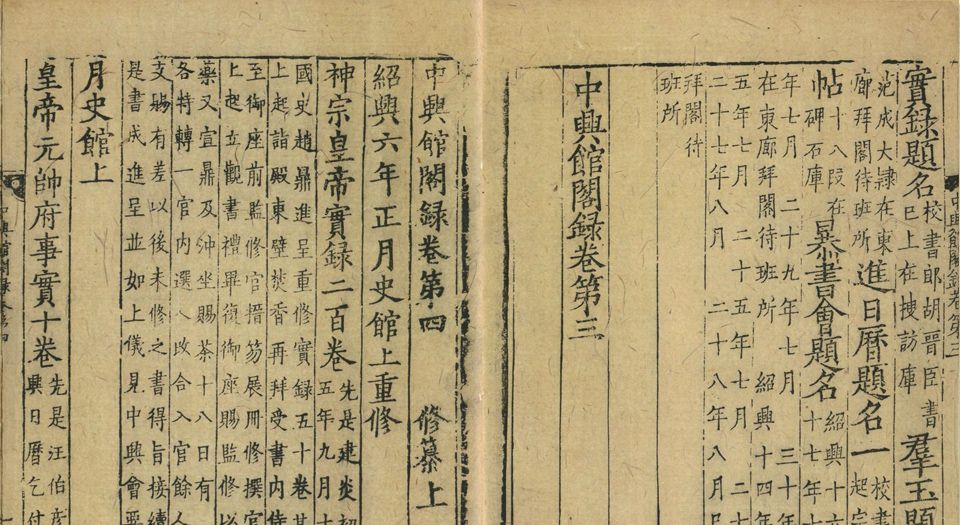 中興館閣錄卷第三
實録題名校書郎胡晉臣書已上在搜訪庫羣玉題
范成大隷在東廊拜閣待班所進日曆題名一校書起宗
帖十八段在碑石庫暴書會題名紹興十六十七年十
年七月 二十九年七月 三十年
在東廊拜閣待班所 紹興十四年
五年七月 二十五年七月 二十
二十七年八月 二十八年八月
拜閣待
班所
中興館閣録卷第三
中興館閣録卷第四 修纂上
紹興六年正月史館上重修
神宗皇帝實録二百卷先是建炎初五年九月十
國史趙鼎進呈重修實録五十卷其
上起詣殿東壁焚香再拜受書内
至御座前監修官搢笏展冊修撰官
上起立觀書禮畢復御座賜監修以
藥又宣鼎及沖坐賜茶十八日有
各特轉一官内選人改合入官餘人
支賜有差以後未修之書得旨接續
是書成進呈並如上儀見中興會要
月史館上
皇帝元帥府事實十卷先是汪伯彦興日曆乞付